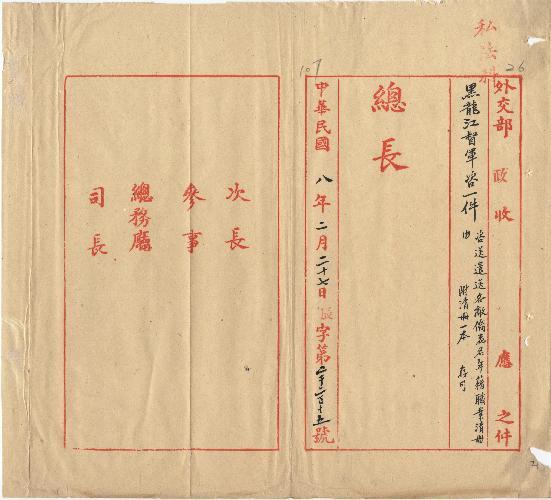 私法科
26
107
外交部 政 收 應 之件
黑龍江督軍咨一件
咨送遣送各敵僑意君年籍職業清冊
由 附清冊一本 存
總長
中華民國八年二月二十七日 字第 號
次長
參事
總務廳
司長